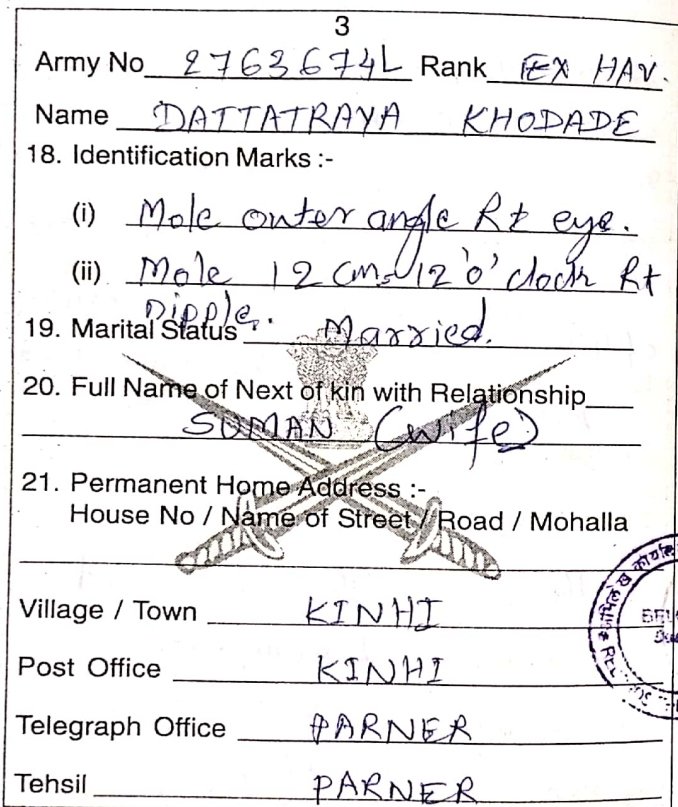 3
Army No 2763674L Rank EX HAV.
Name DATTATRAYA KHODADE
18. Identification Marks :-
(i) Mole outer angle Rt eye.
(ii) Mole 12 cms 12 'o' clock Rt
nipple.
19. Marital Status Married.
20. Full Name of Next of kin with Relationship
SUMAN (wife)
21. Permanent Home Address :-
House No / Name of Street / Road / Mohalla
Village / Town KINHI
Post Office KINHI
Telegraph Office PARNER
Tehsil PARNER